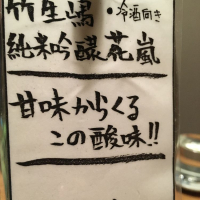 竹生嶋・冷酒向き
純米吟醸花嵐
甘味からくる
この酸味!!